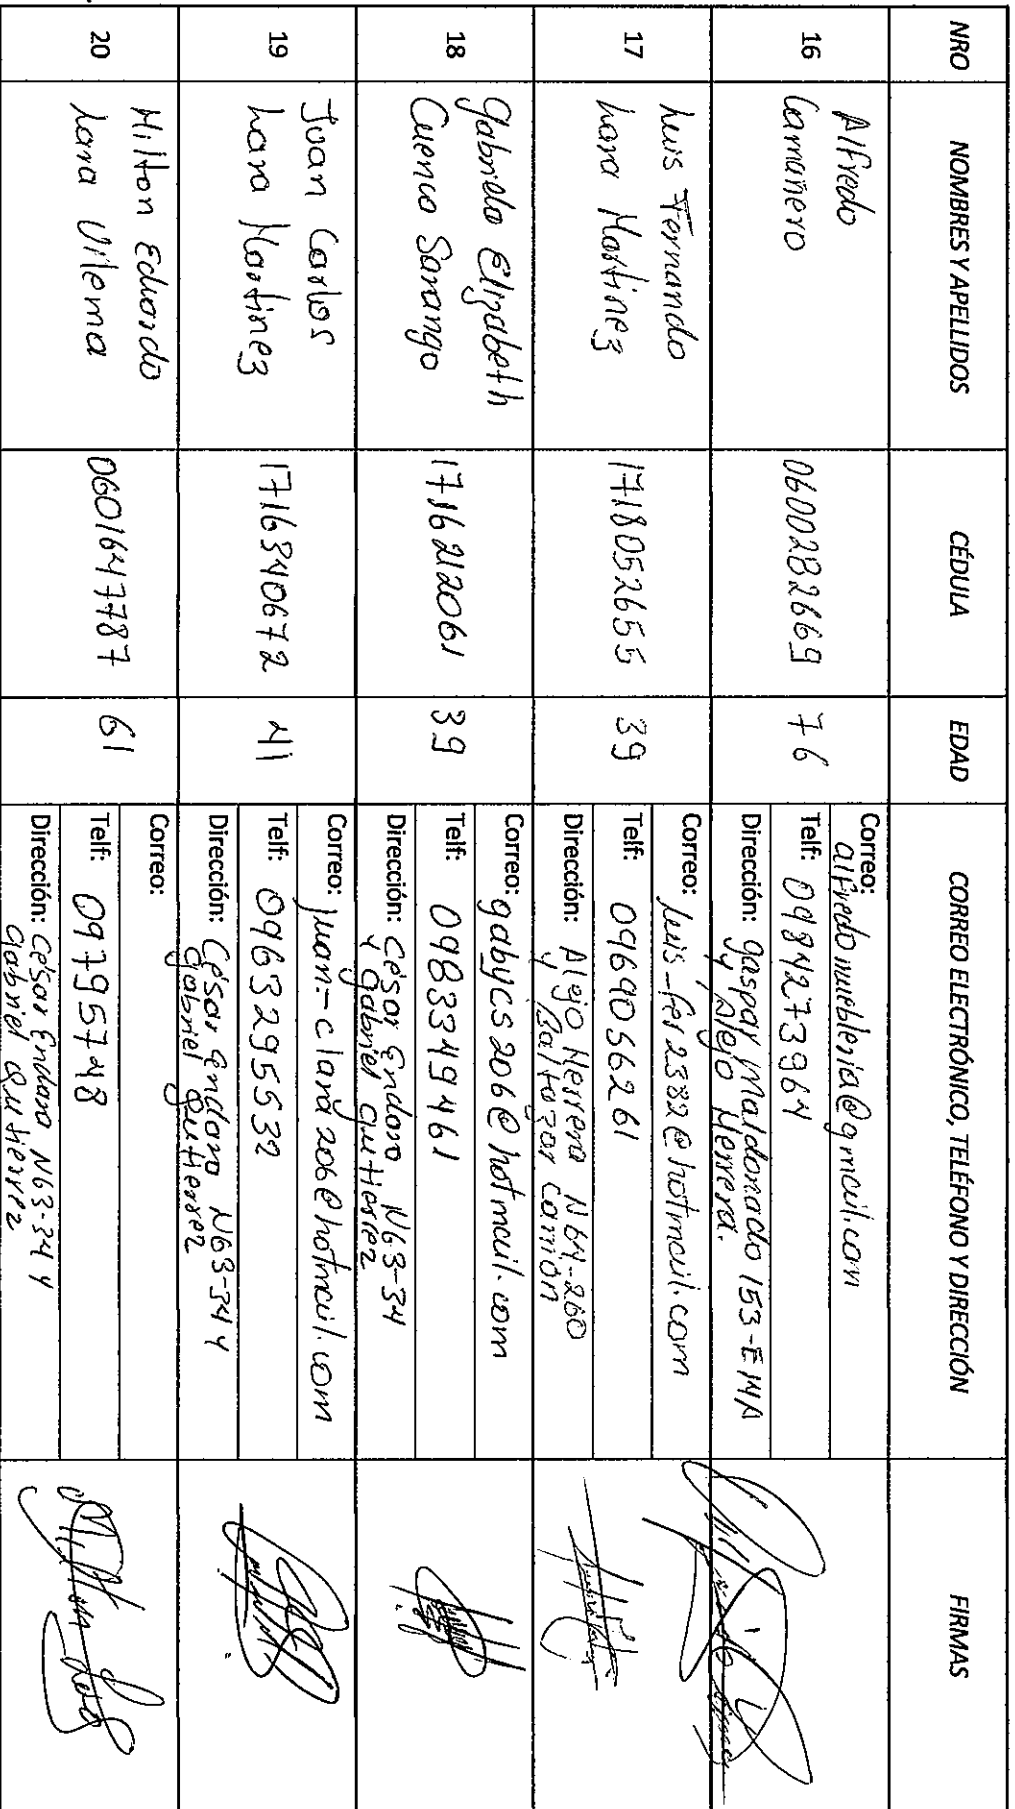 NRO NOMBRES Y APELLIDOS CÉDULA EDAD CORREO ELECTRÓNICO, TELÉFONO Y DIRECCIÓN FIRMAS
16
Alfredo
Camañero
0600282669
76
Correo: alfredomuebleria@gmail.com
Telf: 0984273964
Dirección: Gaspar Maldonado 153-E14A
y Alejo Herrera.
17
Luis Fernando
Lara Martinez
1718052655
39
Correo: luis-fer2382@hotmail.com
Telf: 0969056261
Dirección: Alejo Herrera N64-260
y Baltazar Carrión
18
Gabriela Elizabeth
Cuenca Sarango
1716212061
39
Correo: gabycs206@hotmail.com
Telf: 0983349461
Dirección: César Endara N63-34
y Gabriel Gutierrez
19
Juan Carlos
Lara Martinez
1716340672
41
Correo: juan-clara206@hotmail.com
Telf: 0963295532
Dirección: César Endara N63-34 y
Gabriel Gutierrez
20
Milton Eduardo
Lara Vilema
0601647787
61
Correo:
Telf: 09795748
Dirección: César Endara N63-34 y
Gabriel Gutierrez